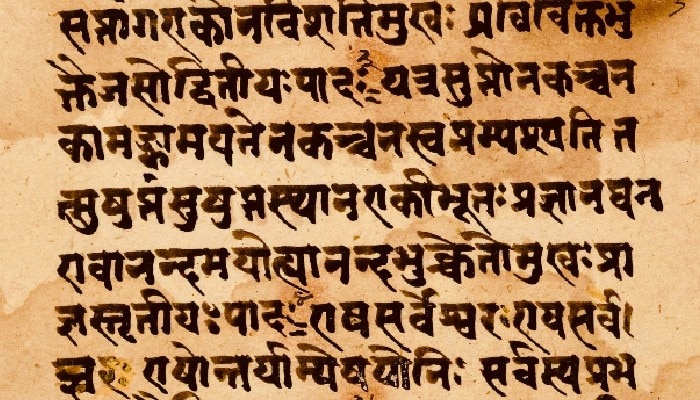 सप्तागएकोनविंशतिमुखः प्रविविक्तभु
क्तैजसोद्वितीयःपादः यत्रसुप्तोनकञ्चन
कामङ्कामयतेनकञ्चनस्वप्नम्पश्यति त
त्सुषुप्तंसुषुप्तस्थानएकीभूतःप्रज्ञानघन
एवानन्दमयोह्यानन्दभुक्चेतोमुखःप्रा
ज्ञस्तृतीयःपादः एषसर्वेश्वरःएषसर्व
ज्ञः एषोन्तर्याम्येषयोनिः सर्वस्यप्रभ